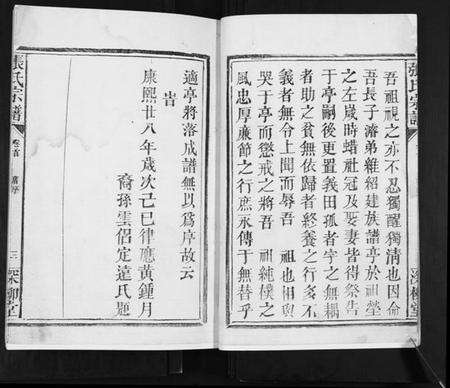 張氏宗譜
吾祖視之亦不忍獨醒獨清也因命
吾長子濬弟維紹建族譜亭於祖塋
之左歲時蜡社冠及娶妻皆得祭告
于亭嗣後更置義田孤者字之無耦
者助之貧無依歸者終養之行多不
義者無令上聞而辱吾 祖也相與
哭于亭而懲戒之將吾 祖純樸之
風忠厚廉節之行庶永傳于無替乎
適亭將落成譜無以爲序故云
旹
康熙廿八年歲次己巳律應黃鍾月
裔孫雲侶定遠氏題
張氏宗譜
卷首
舊序
三
深柳堂